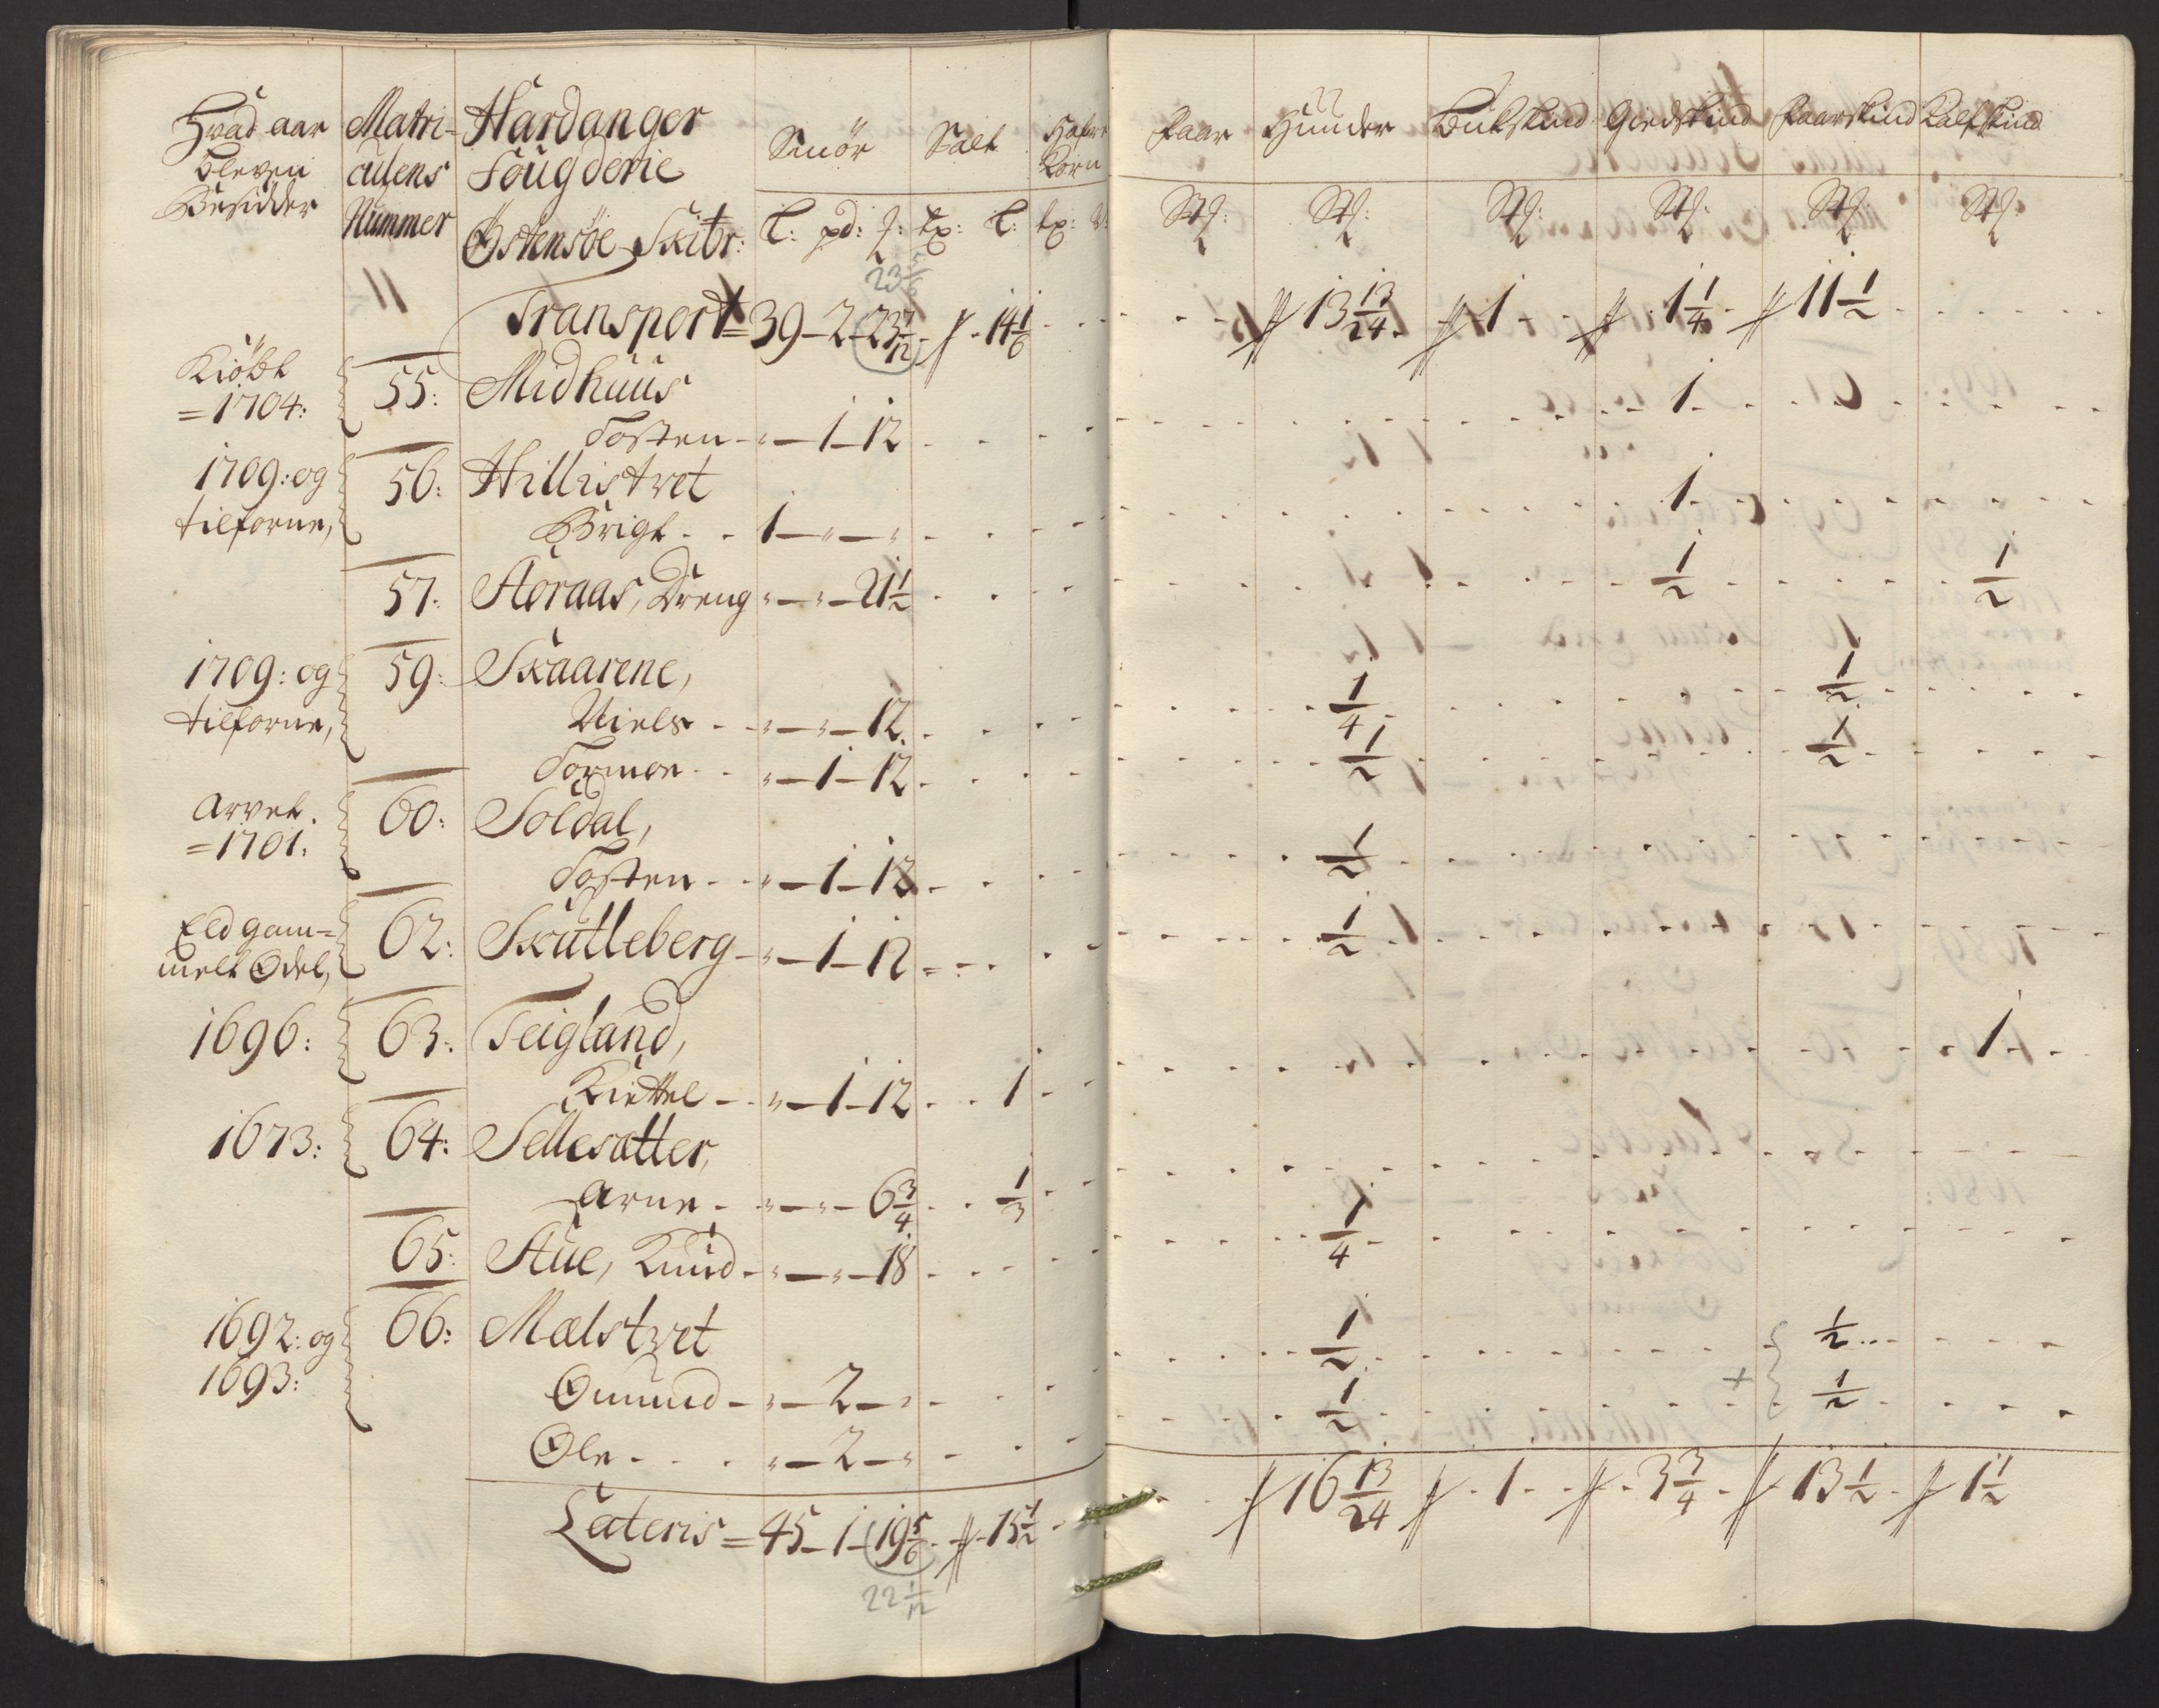 Hvad aar bleven Besidder | Matriculens Nummer | Hardanger Fougderie Östensöe Skibr: | Smör L: pd: | Salt tp: L: | Hafre Korn tp:
Faar Stk: | Huuder Stk: | Bukskind Stk: | Giedskind Stk: | Faarskind Stk: | Kalfskind Stk:
23 5/6
Transport = 39 - 2 - 23 7/12 - 14 1/6 | 13 13/24 | 1 | 1 1/4 | 11 1/2
Kiöbt =1704: 55: Midhuus | 1
Tosten - " - 1 - 12
1709: og tilforne, 56: Hillistvet | 1
Brigt - 1 - " - "
57: Aoraas, Dreng " - " - 21 1/2 | 1/2 | 1/2
1709: og tilforne, 59: Skaarene,
Niels - " - " - 12 | 1/4 | 1/2
Tormoe - " - 1 - 12 | 1/2 | 1/2
Arvet =1701: 60: Soldal,
Tosten - " - 1 - 12 | 1/2
Eld gammelt Odel, 62: Skutleberg - " - 1 - 12 | 1/2
1696: 63: Teigland,
Kiettel - " - 1 - 12 | 1 | 1
1673: 64: Sellesætter,
Arne - " - " - 6 3/4 | 1/3
65: Aue, Knud - " - " - 18 | 1/4
1692: og 1693: 66: Mælstvet
Omund - " - 2 - " | 1/2 | 1/2
Ole - " - 2 - " | 1/2 | + 1/2
Lateris = 45 - 1 - 19 5/6 - 15 1/2 | 16 13/24 | 1 | 3 3/4 | 13 1/2 | 1 1/2
22 1/12